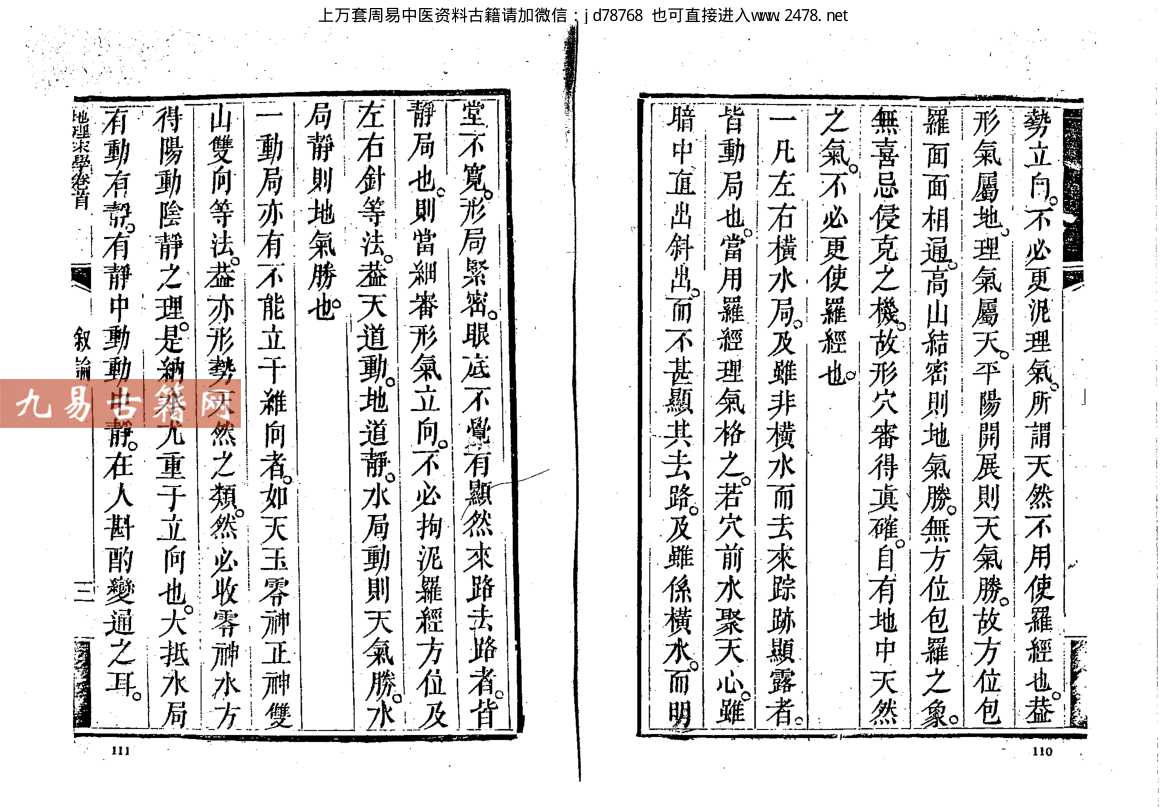 上万套周易中医资料古籍请加微信：jd78768 也可直接进入www.2478.net
勢立向。不必更泥理氣。所謂天然不用使羅經也。葢
形氣屬地。理氣屬天。平陽開展則天氣勝。故方位包
羅面面相通。高山結密則地氣勝。無方位包羅之象。
無喜忌侵克之機。故形穴審得真確。自有地中天然
之氣。不必更使羅經也。
一凡左右橫水局。及雖非橫水而去來踪跡顯露者。
皆動局也。當用羅經理氣格之。若穴前水聚天心。雖
暗中直出斜出。而不甚顯其去路。及雖係橫水。而明
110
堂不寬。形局緊密。眼底不覺有顯然來路去路者。皆
靜局也。則當細審形氣立向。不必拘泥羅經方位及
左右針等法。葢天道動。地道靜。水局動則天氣勝。水
局靜則地氣勝也。
一動局亦有不能立干維向者。如天玉零神正神雙
山雙向等法。葢亦形勢天然之類。然必收零神水方
得陽動陰靜之理。是納水尤重于立向也。大抵水局
有動有靜。有靜中動動中靜。在人斟酌變通之耳。
地理末學卷首
叙論
三
111
九易古籍网